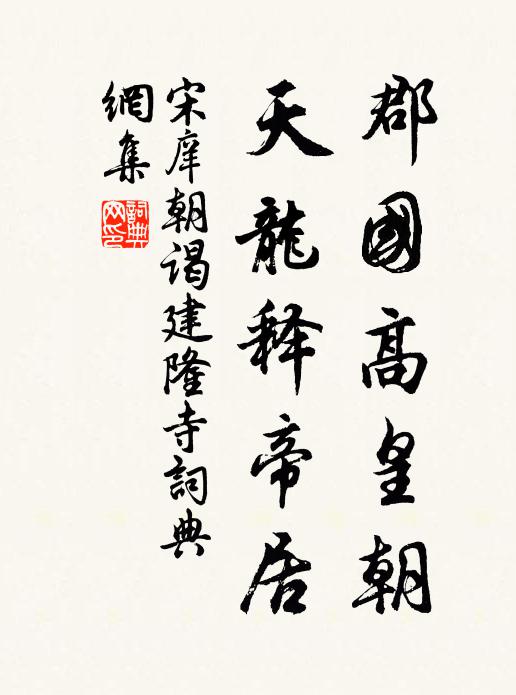 郡國高皇朝
天龍释帝居
宋庠朝謁建隆寺詞典
網集
詞典網印